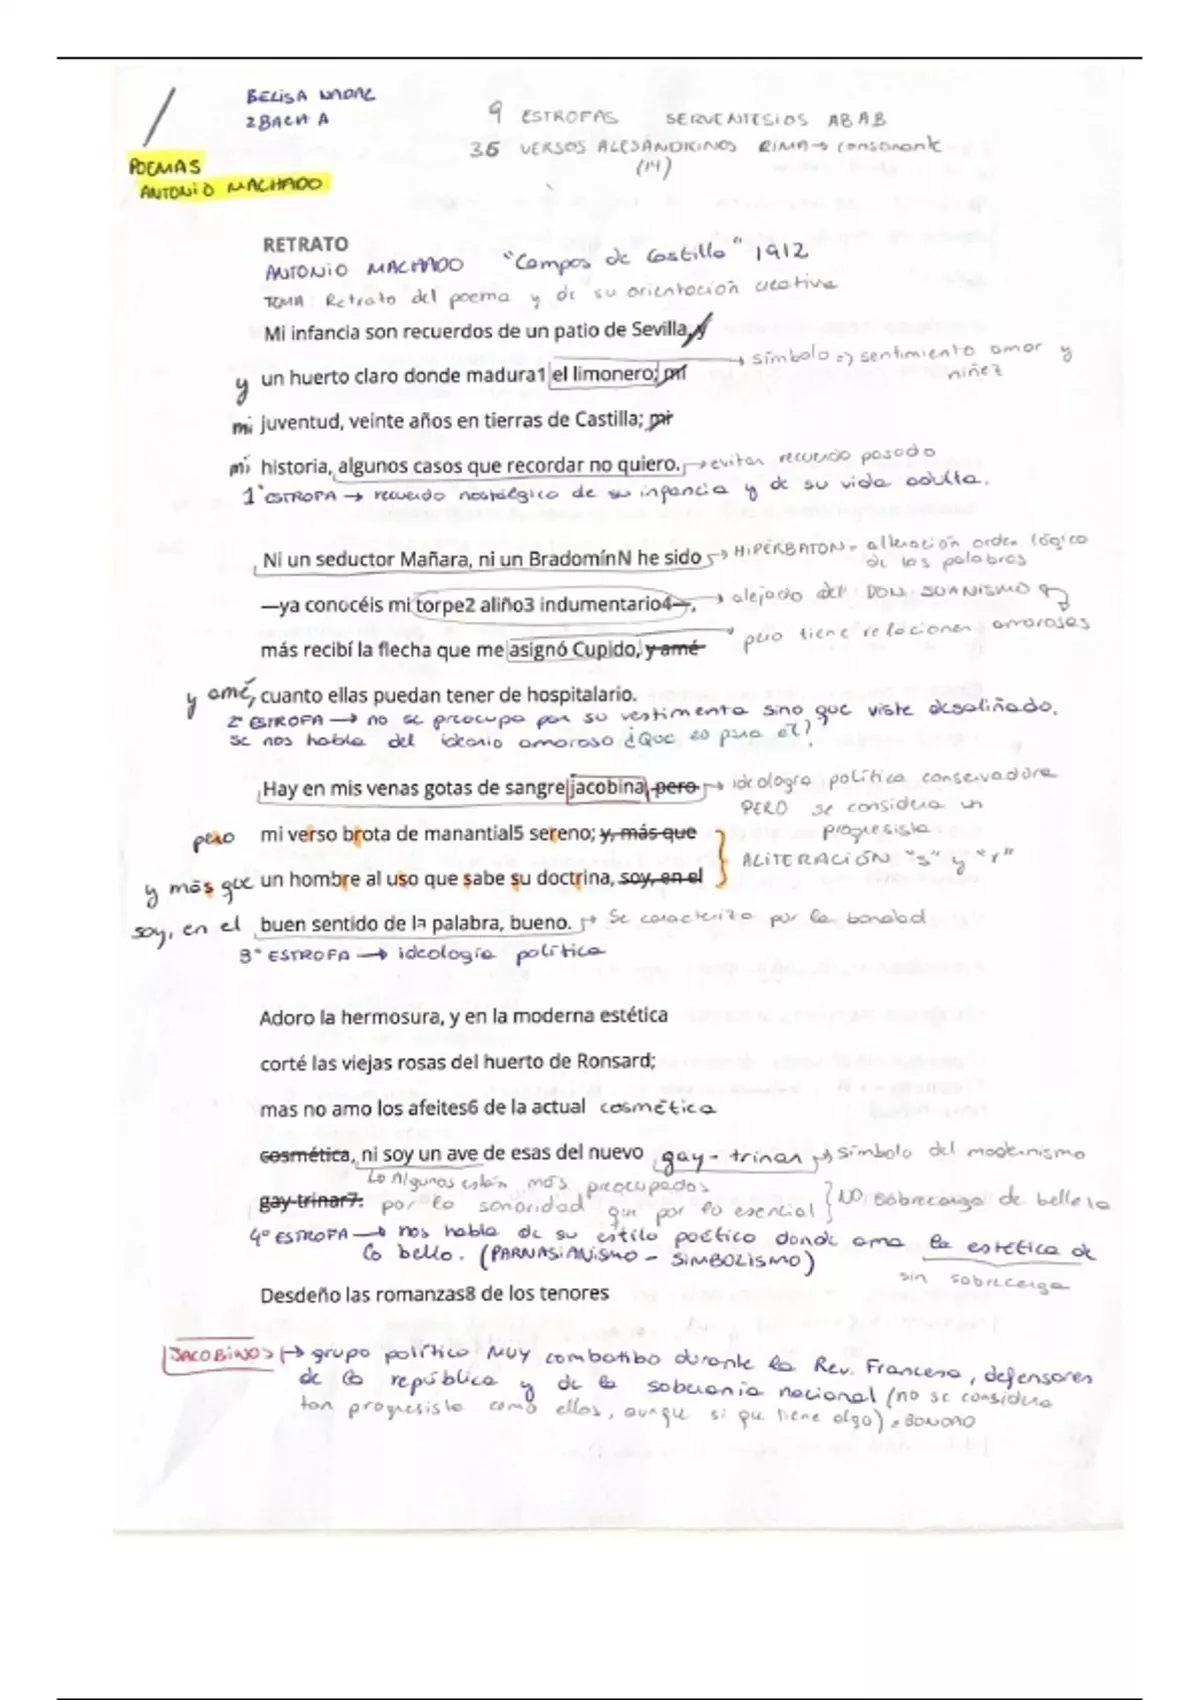 BELISA NADAL
2 BACH A
9 ESTROFAS SERVENTESIOS ABAB
36 VERSOS ALEJANDRINOS RIMA → consonante
(14)
POEMAS
ANTONIO MACHADO
RETRATO
ANTONIO MACHADO "Campos de Castilla" 1912
TEMA: Retrato del poema y de su orientación creativa
Mi infancia son recuerdos de un patio de Sevilla, y
→ símbolo => sentimiento amor y
niñez
y un huerto claro donde madura1 el limonero; mi
mi juventud, veinte años en tierras de Castilla; mi
mi historia, algunos casos que recordar no quiero. → evitar recuerdo pasado
1ª ESTROFA → recuerdo nostálgico de su infancia y de su vida adulta.
Ni un seductor Mañara, ni un BradomínN he sido → HIPÉRBATON = alteración orden lógico
de las palabras
—ya conocéis mi torpe2 aliño3 indumentario4—, → alejado del DON JUANISMO
más recibí la flecha que me asignó Cupido, y amé pero tiene relaciones amorosas
y amé, cuanto ellas puedan tener de hospitalario.
2ª ESTROFA → no se preocupa por su vestimenta sino que viste desaliñado.
se nos habla del ideario amoroso ¿Que es para él?
Hay en mis venas gotas de sangre jacobina, pero → ideologia política conservadora
PERO se considera un
progresista
pero mi verso brota de manantial5 sereno; y, más que
ALITERACIÓN "s" y "r"
y más que un hombre al uso que sabe su doctrina, soy, en el
soy, en el buen sentido de la palabra, bueno. → Se caracteriza por la bondad
3ª ESTROFA → ideología política
Adoro la hermosura, y en la moderna estética
corté las viejas rosas del huerto de Ronsard;
mas no amo los afeites6 de la actual cosmética
cosmética, ni soy un ave de esas del nuevo gay-trinar → símbolo del modernismo
Algunos están más preocupados
gay-trinar7. por la sonoridad que por lo esencial } NO sobrecarga de belleza
4º ESTROFA → nos habla de su estilo poético donde ama la estética de
lo bello. (PARNASIANISMO - SIMBOLISMO)
sin sobrecarga
Desdeño las romanzas8 de los tenores
JACOBINOS → grupo político MUY combatibo durante la Rev. Francesa, defensores
de la república y de la soberania nacional (no se considera
tan progresista como ellos, aunque si que tiene algo)